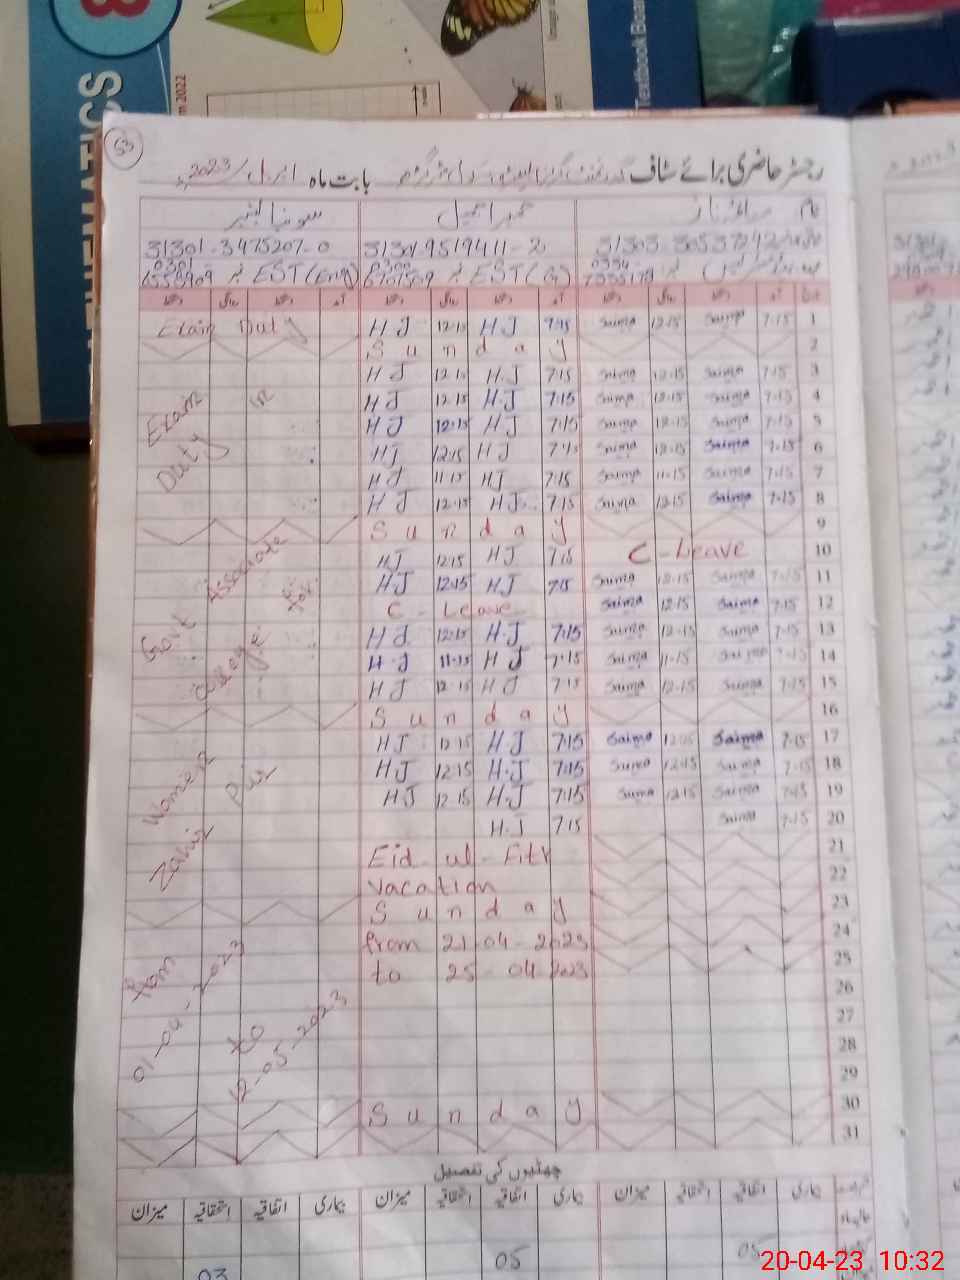 MATHEMATICS
Textbook Board
53
رجسٹر حاضری برائے سٹاف
بابت ماہ اپریل/2023ء
نام
31303-3053724
31301-9519411-2
31301-3475207-0
EST
EST (Eng)
1 7:15 Saima 12:15 Saima 7:15 HJ 12:15 HJ Exam Duty
2 Sunday
3 7:15 Saima 12:15 Saima 7:15 H.J 12:15 HJ
4 7:15 Saima 12:15 Saima 7:15 H.J 12:15 HJ
5 7:15 Saima 12:15 Saima 7:15 HJ 12:15 HJ
6 7:15 Saima 12:15 Saima 7:15 HJ 12:15 HJ
7 7:15 Saima 11:15 Saima 7:15 HJ 11:15 HJ
8 7:15 Saima 12:15 Saima 7:15 HJ 12:15 HJ
9 Sunday
10 C-Leave 7:15 HJ 12:15 HJ
11 7:15 Saima 12:15 Saima 7:15 HJ 12:15 HJ
12 7:15 Saima 12:15 Saima C-Leave
13 7:15 Saima 12:15 Saima 7:15 H.J 12:15 HJ
14 7:15 Saima 11:15 Saima 7:15 HJ 11:15 H.J
15 7:15 Saima 12:15 Saima 7:15 HJ 12:15 HJ
16 Sunday
17 7:15 Saima 12:15 Saima 7:15 H.J 12:15 HJ
18 7:15 Saima 12:15 Saima 7:15 H.J 12:15 HJ
19 7:15 Saima 12:15 Saima 7:15 H.J 12:15 HJ
20 7:15 Saima 7:15 H.J
21 Eid-ul-Fitr
22 Vacation
23 Sunday
24 from 21-04-2023
25 to 25-04-2023
26
27
28
29
30 Sunday
31
Exam Duty in
Govt Associate College for
Women Zahir Pir
from 01-04-2023
to 12-05-2023
چھٹیوں کی تفصیل
بیماری اتفاقیہ استحقاقیہ میزان بیماری اتفاقیہ استحقاقیہ میزان بیماری اتفاقیہ استحقاقیہ میزان
05 05 03
20-04-23 10:32